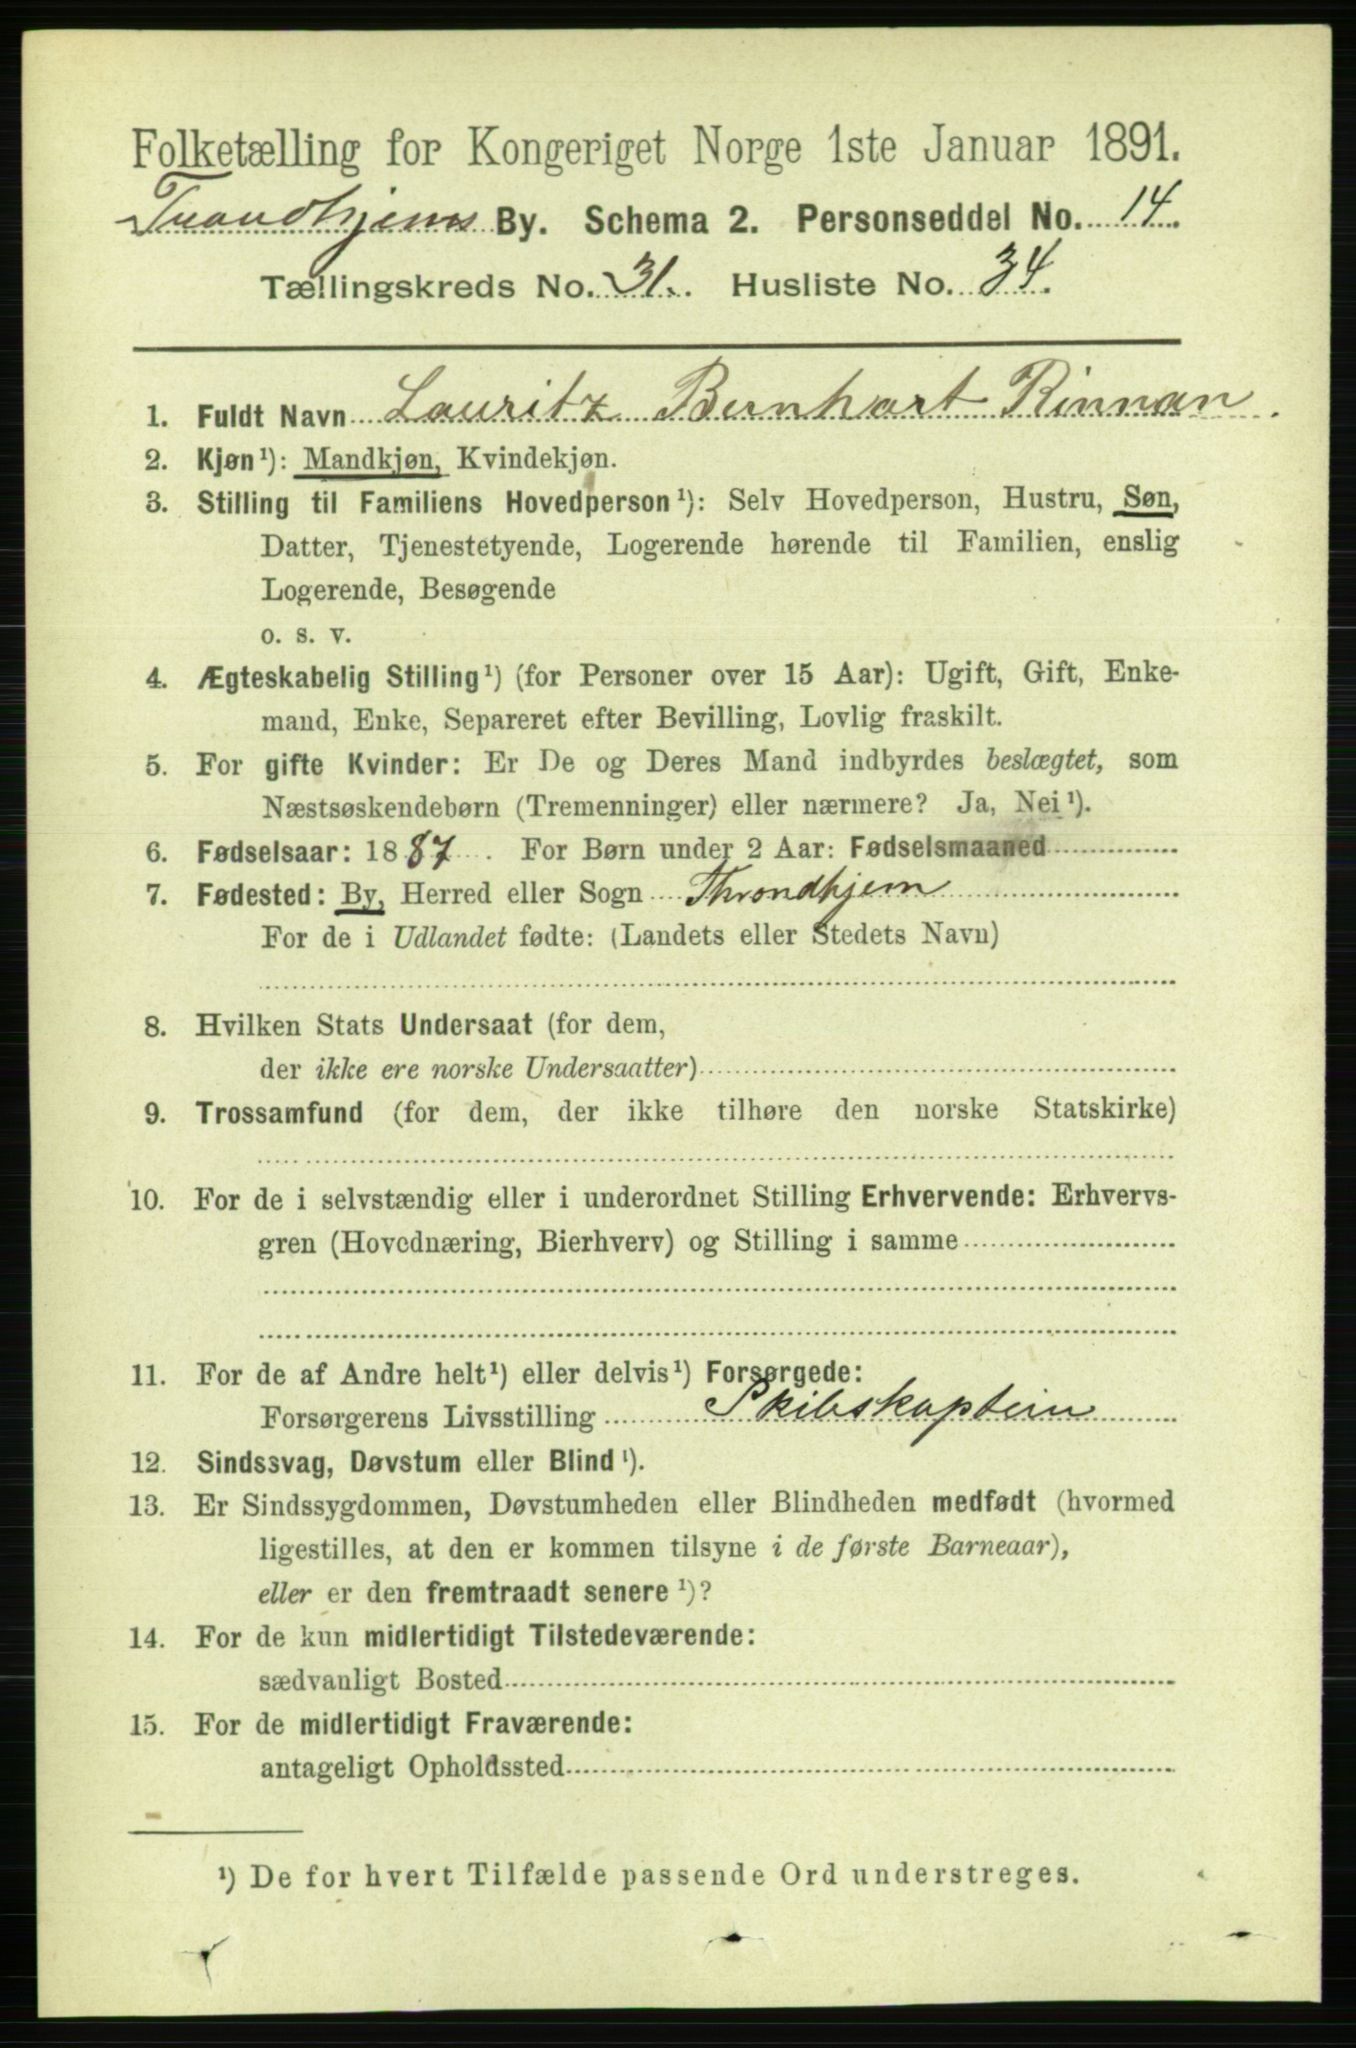 Folketælling for Kongeriget Norge 1ste Januar 1891.
Trondhjems By. Schema 2. Personseddel No. 14.
Tællingskreds No. 31. Husliste No. 34.
1. Fuldt Navn Lauritz Bernhart Rinnan.
2. Kjøn¹): Mandkjøn, Kvindekjøn.
3. Stilling til Familiens Hovedperson¹): Selv Hovedperson, Hustru, Søn,
Datter, Tjenestetyende, Logerende hørende til Familien, enslig
Logerende, Besøgende
o. s. v.
4. Ægteskabelig Stilling¹) (for Personer over 15 Aar): Ugift, Gift, Enke-
mand, Enke, Separeret efter Bevilling, Lovlig fraskilt.
5. For gifte Kvinder: Er De og Deres Mand indbyrdes beslægtet, som
Næstsøskendebørn (Tremenninger) eller nærmere? Ja, Nei¹).
6. Fødselsaar: 1887. For Børn under 2 Aar: Fødselsmaaned
7. Fødested: By, Herred eller Sogn Throndhjem
For de i Udlandet fødte: (Landets eller Stedets Navn)
8. Hvilken Stats Undersaat (for dem,
der ikke ere norske Undersaatter)
9. Trossamfund (for dem, der ikke tilhøre den norske Statskirke)
10. For de i selvstændig eller i underordnet Stilling Erhvervende: Erhvervs-
gren (Hovednæring, Bierhverv) og Stilling i samme
11. For de af Andre helt¹) eller delvis¹) Forsørgede:
Forsørgerens Livsstilling Skibskaptein
12. Sindssvag, Døvstum eller Blind¹).
13. Er Sindssygdommen, Døvstumheden eller Blindheden medfødt (hvormed
ligestilles, at den er kommen tilsyne i de første Barneaar),
eller er den fremtraadt senere¹)?
14. For de kun midlertidigt Tilstedeværende:
sædvanligt Bosted
15. For de midlertidigt Fraværende:
antageligt Opholdssted
¹) De for hvert Tilfælde passende Ord understreges.